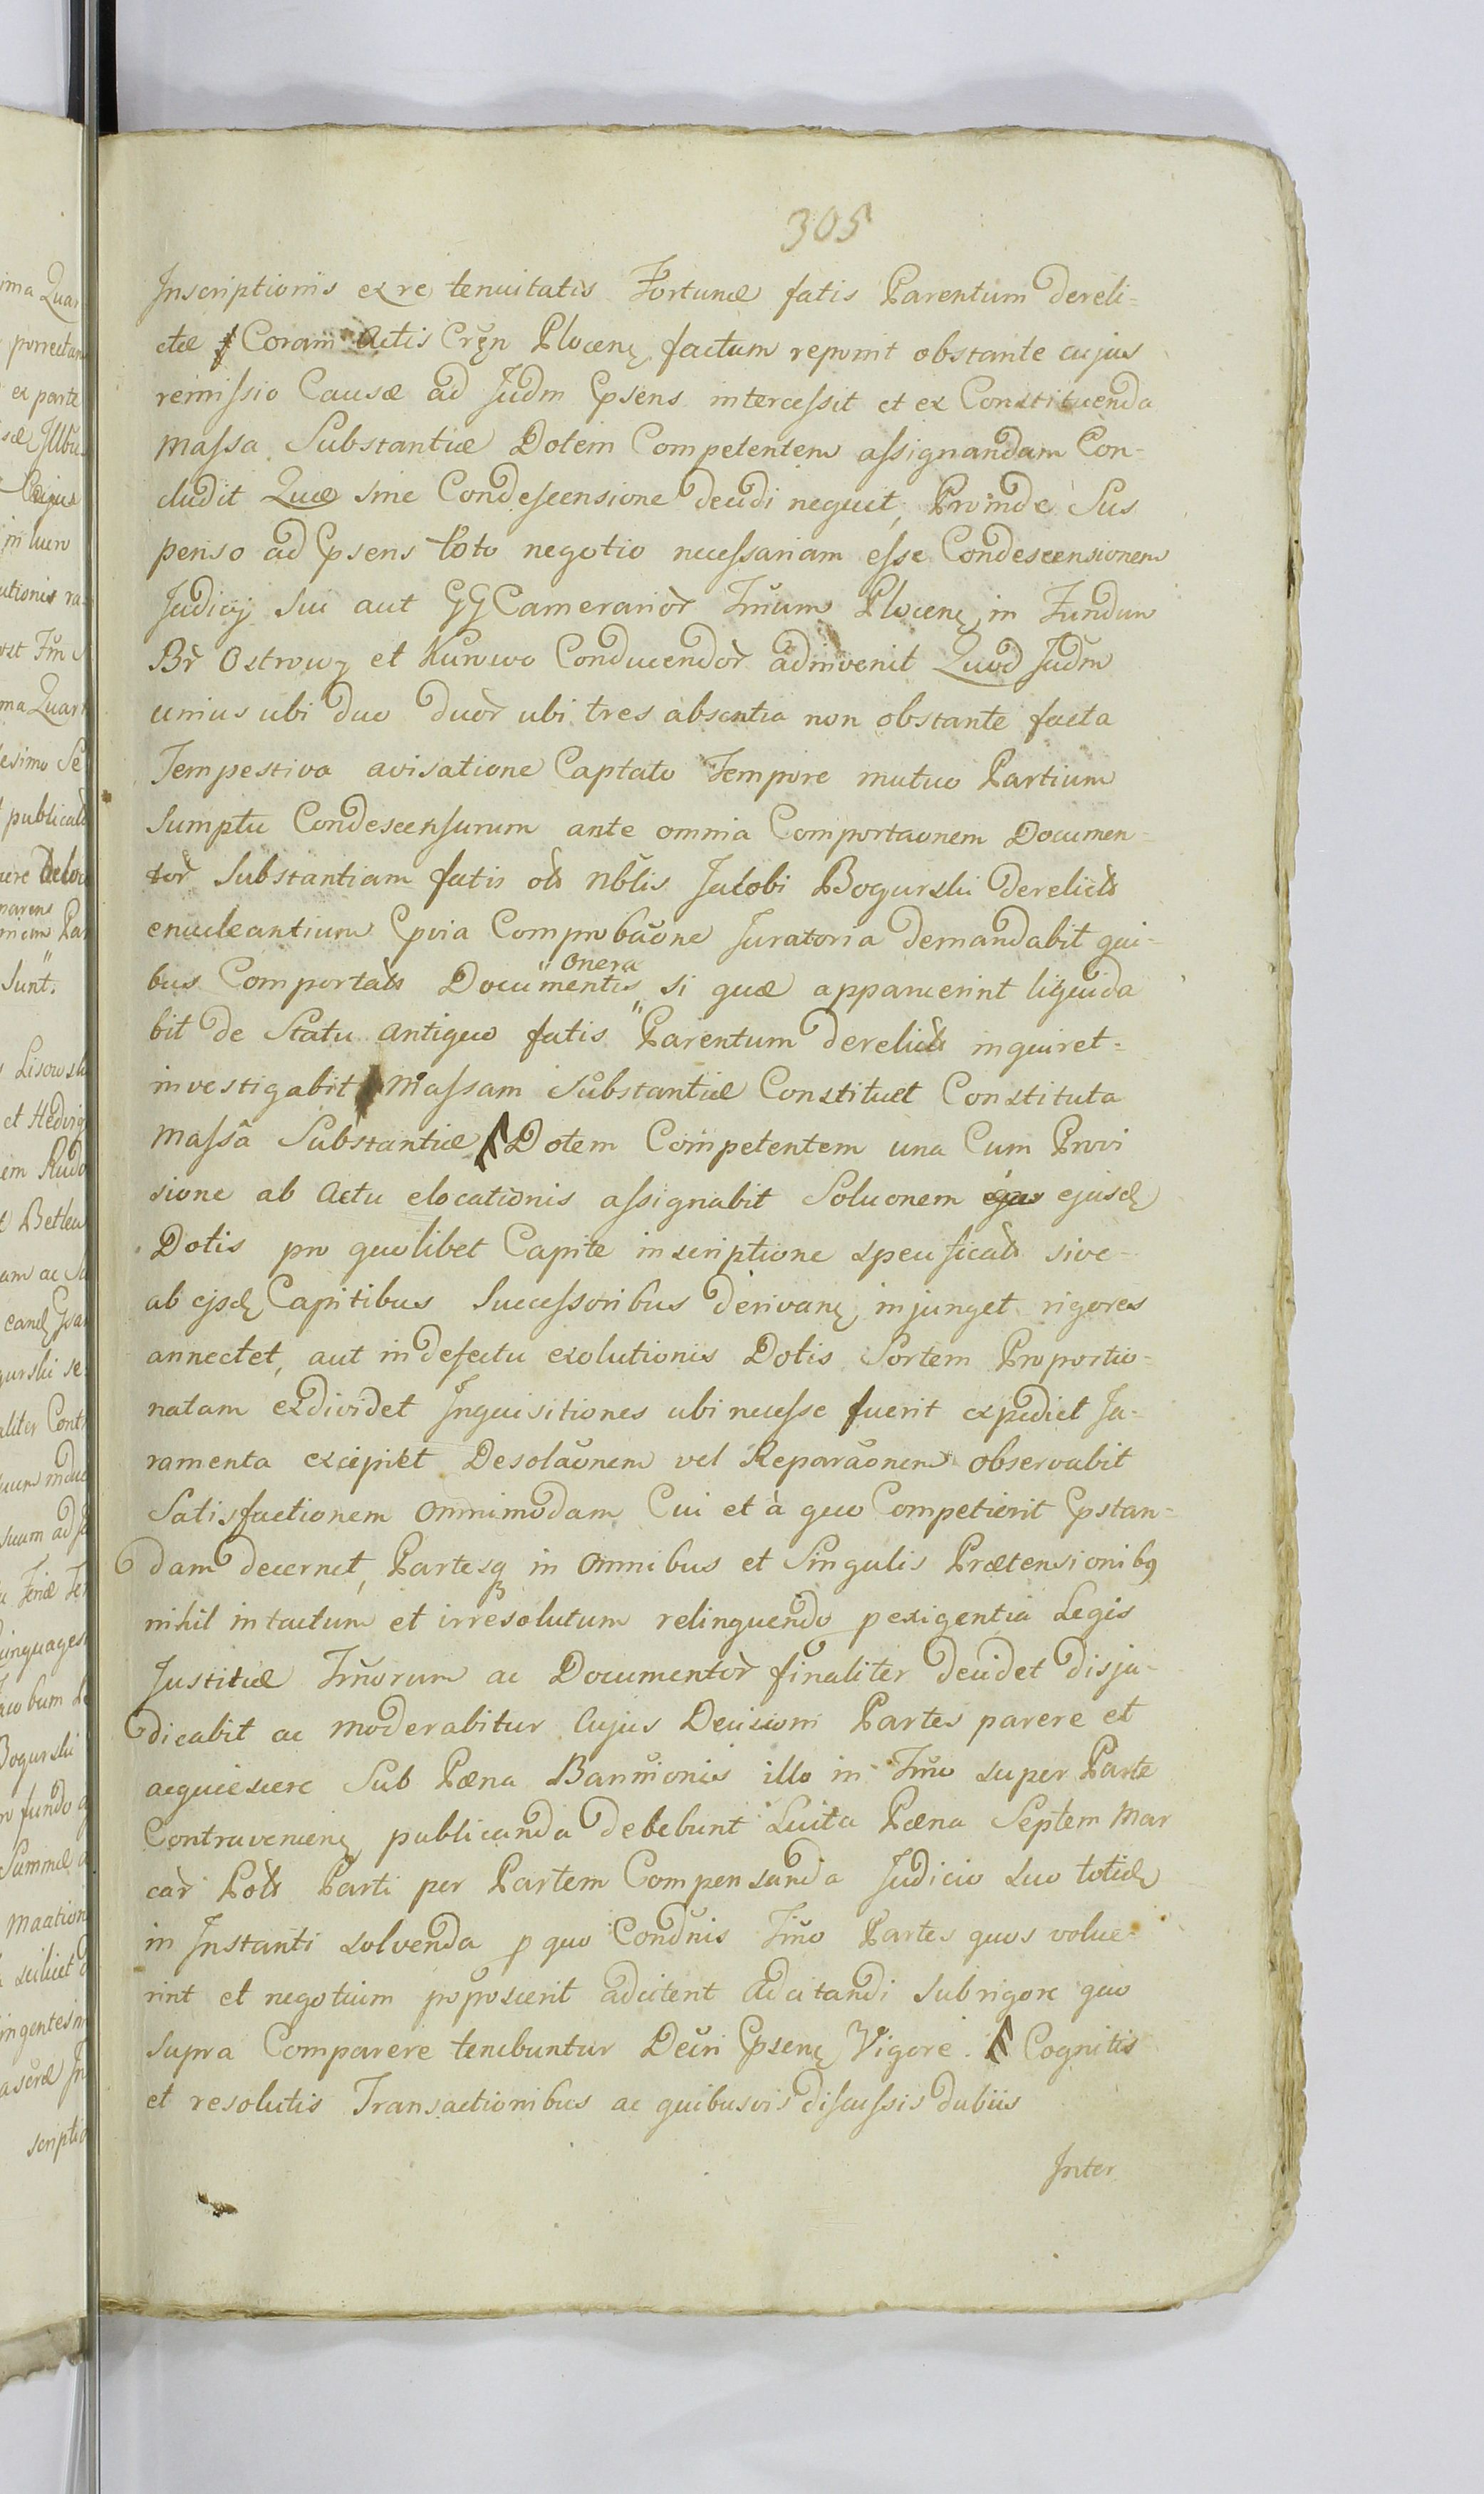 305
Inscriptionis ex re tenuitatis Fortunæ fatis Parentum dereli-
ctæ Coram Actis Crẽn Plocenę factum reponit obstante cujus
remissio Causæ ad Judm Ipsens intercessit et ex Constituenda
Massa Substantiæ Dotem Competentem assignandam Con-
cludit Quæ sine Condescensione decidi nequit, Proinde Sus
penso ad Ipsens toto negotio necessariam esse Condescensionem
Judicij Sui aut GG Camerarior̃ Trũum Plocenę in Fundum
Br̃ Ostrowy et Kunowo Conducendor̃ adinvenit Quod Judm
unius ubi duo duor̃ ubi tres absentia non obstante facta
Tempestiva avisatione Captato Tempore mutuo Partium
Sumptu Condescensurum ante omnia Comportaonem Documen-
tor̃ Substantiam fatis Nblis Jacobi Bogurski derelict
enucleantium Comprobãone Juratoria demandabit qui-
bus Comportat Documentis Onera si quæ apparuerint liquida
bit de Statu antiquo fatis Parentum derelict inquiret-
investigabit Massam Substantiæ Constituet Constituta
Massa Substantiæ Dotem Competentem una Cum Provi
sione ab Actu elocationis assignabit Soluonem ejus ejusdę
Dotis pro quolibet Capite inscriptione specificat sive-
ab ejsdę Capitibus Successoribus derivanę, injunget rigores
annectet, aut in defectu exolutionis Dotis Sortem Proportio-
natam exdividet Inquisitiones ubi necesse fuerit expediet Ju-
ramenta excipiet Desolãonem vel Reparãonem observabit
Satisfactionem Omnimodam Cui et à quo Competierit Ipstan-
dam decernet, Partesq in Omnibus et Singulis Prætensionibq
nihil intactum et irresolutum relinquendo p exigentia Legis
Justitiæ Trũorum ac Documentor̃ finaliter decidet disju-
dicabit ac moderabitur Cujus Decisioni Partes parere et
acquiescere Sub Pæna Bannionis illo in Trũo super Parte
Contravenienę publicanda debebunt Luita Pæna Septem Mar
car̃ Parti per Partem Compensanda Judicio suo totidę
in Instanti solvenda p quo Condnis Trũo Partes quos volue-
rint et negotium poposcerit adcitent Adcitandi sub rigore quo
supra Comparere tenebuntur Decri Ipsenę Vigore. Cognitis
et resolutis Transactionibus ac quibusvis discussis dubiis
Inter